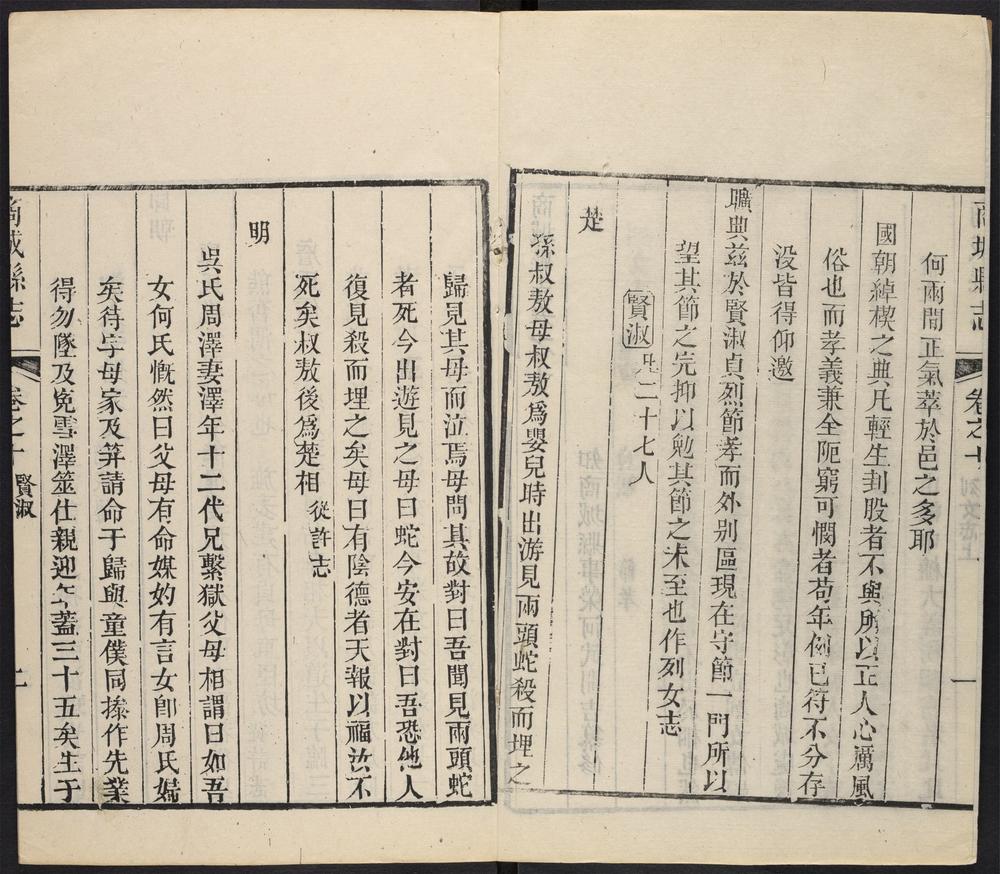 商城縣志
卷之十
列女志上
一
何兩間正氣萃於邑之多耶
國朝綽楔之典凡輕生刲股者不與所以正人心厲風
俗也而孝義兼全阨窮可憫者苟年例已符不分存
没皆得仰邀
曠典兹於賢淑貞烈節孝而外别區現在守節一門所以
望其節之完抑以勉其節之未至也作列女志
賢淑 凡二十七人
楚
孫叔敖母叔敖爲嬰兒時出游見兩頭蛇殺而埋之
歸見其母而泣焉母問其故對曰吾聞見兩頭蛇
者死今出遊見之母曰蛇今安在對曰吾恐他人
復見殺而埋之矣母曰有陰德者天報以福汝不
死矣叔敖後爲楚相 從許志
明
吳氏周澤妻澤年十二代兄繫獄父母相謂曰如吾
女何氏慨然曰父母有命媒妁有言女卽周氏婦
矣待字母家及笄請命于歸與童僕同操作先業
得勿墜及寃雪澤筮仕親迎年蓋三十五矣生于
商城縣志
卷之十
賢淑
二